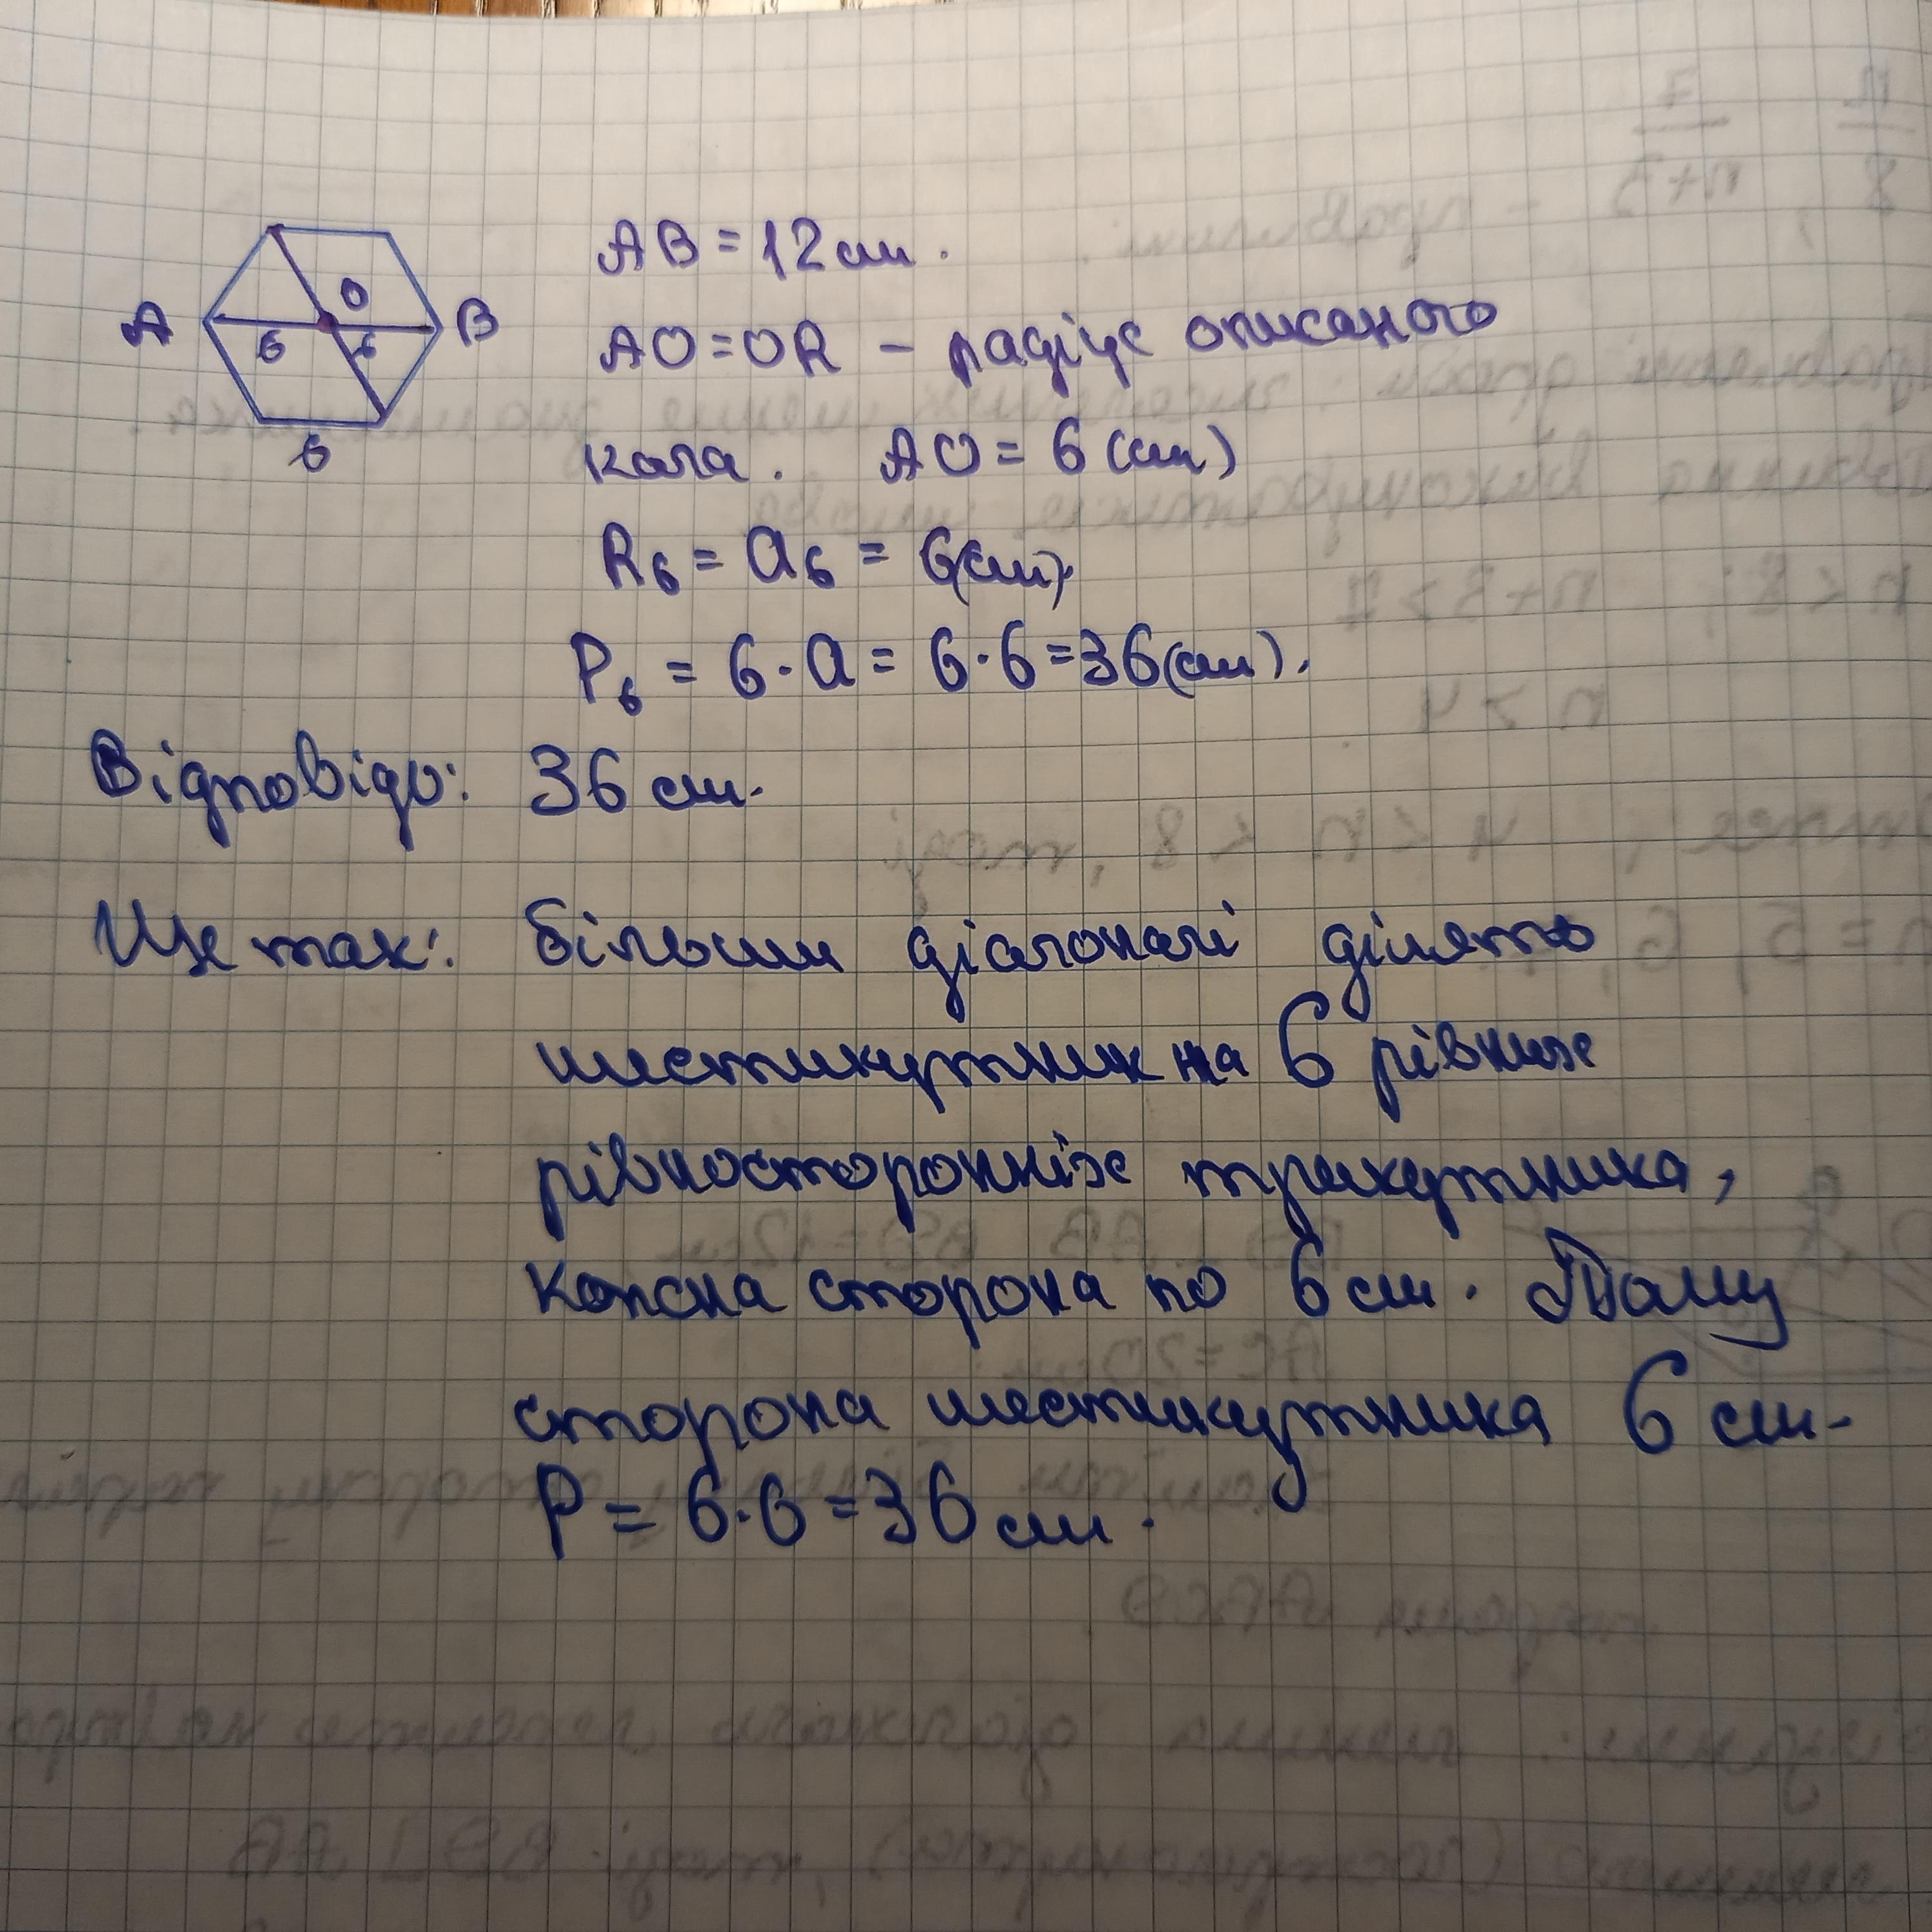 A
O
B
6
6
6
AB = 12 см.
AO = OR – радіус описаного
кола. AO = 6 (см)
R₆ = a₆ = 6(см).
P₆ = 6 · a = 6 · 6 = 36(см).
Відповідь: 36 см.
Ще так: більші діагоналі ділять
шестикутник на 6 рівних
рівносторонніх трикутника,
кожна сторона по 6 см. Тому
сторона шестикутника 6 см.
P = 6·6 = 36 см.